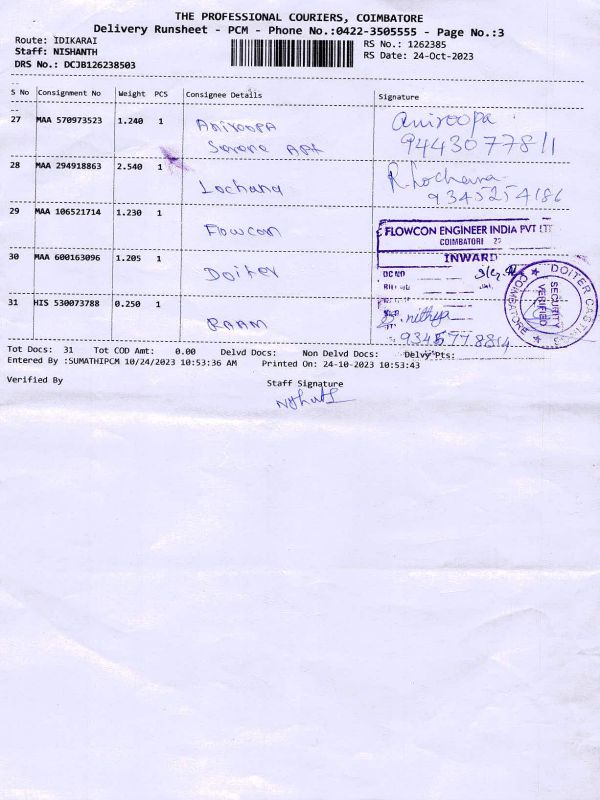 THE PROFESSIONAL COURIERS, COIMBATORE
Delivery Runsheet - PCM - Phone No.:0422-3505555 - Page No.:3
Route: IDIKARAI RS No.: 1262385
Staff: NISHANTH RS Date: 24-Oct-2023
DRS No.: DCJB126238503
S No Consignment No Weight PCS Consignee Details Signature
27 MAA 570973523 1.240 1 Aniroopa Aniroopa
Sarana Apt 9443077811
28 MAA 294918863 2.540 1 Lochana R.Lochana
9345254186
29 MAA 106521714 1.230 1 Flowcon FLOWCON ENGINEER INDIA PVT LTD
COIMBATORE
30 MAA 600163096 1.205 1 Doiter INWARD
DOITER CASTINGS
SECURITY VERIFIED
COIMBATORE
31 HIS 530073788 0.250 1 RAAM nithya
9345778814
Tot Docs: 31 Tot COD Amt: 0.00 Delvd Docs: Non Delvd Docs: Delvy Pts:
Entered By :SUMATHIPCM 10/24/2023 10:53:36 AM Printed On: 24-10-2023 10:53:43
Verified By Staff Signature